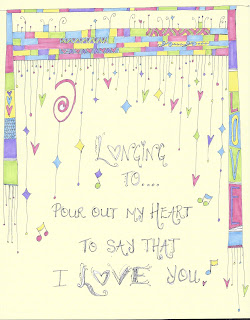 LONGING
TO....
POUR OUT MY HEART
TO SAY THAT
I LOVE YOU.